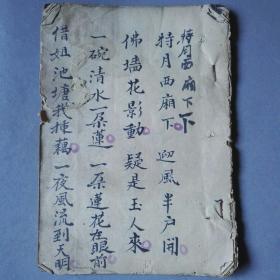 待月西廂下下
待月西廂下 迎風半户開
佛墻花影動 疑是玉人來
一碗清水一朶蓮 一朶蓮花在眼前
借姐池塘我種藕 一夜風流到天明